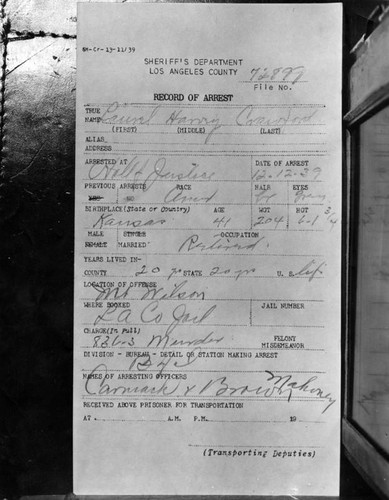 SH-Cr-13-11/39
SHERIFF'S DEPARTMENT
LOS ANGELES COUNTY
File No.
RECORD OF ARREST
TRUE
NAME Laurel Harvey Crawford
(FIRST) (MIDDLE) (LAST)
ALIAS
ADDRESS
ARRESTED AT DATE OF ARREST
Hall of Justice 12-12-39
PREVIOUS ARRESTS RACE HAIR EYES
YES NO Amer
BIRTHPLACE (State or Country) AGE WGT HGT
Kansas 41 204 6-1 3/4
MALE SINGLE OCCUPATION
FEMALE MARRIED Retired
YEARS LIVED IN-
COUNTY 20 yrs STATE 20 yrs U. S. life
LOCATION OF OFFENSE
Mt Wilson
WHERE BOOKED JAIL NUMBER
L A Co Jail
CHARGE (In Full) FELONY
Murder MISDEMEANOR
DIVISION - BUREAU - DETAIL OR STATION MAKING ARREST
NAMES OF ARRESTING OFFICERS
Carmack & Brown Mahoney
RECEIVED ABOVE PRISONER FOR TRANSPORTATION
AT A.M. P.M. 19
(Transporting Deputies)